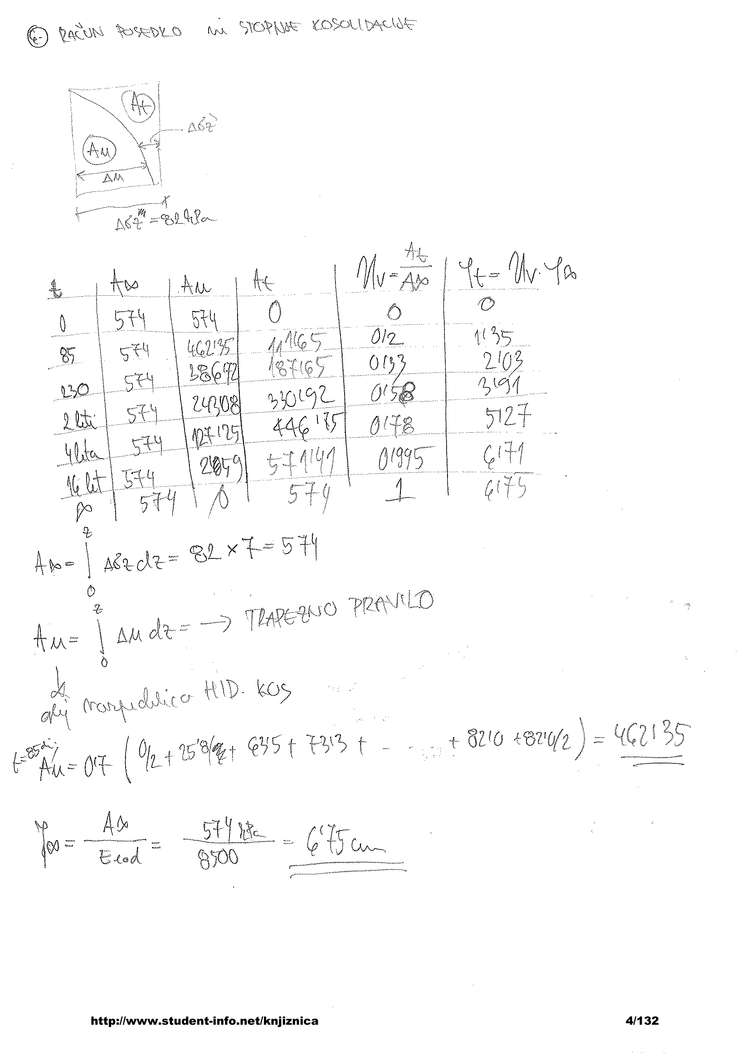 6. RAČUN POSEDKO in STOPNJE KOSOLIDACIJE
At
Au
Δσz'
Δu
Δσz^m = 82 kPa
t A∞ Au At Uv = At/A∞ ρt = Uv · ρ∞
0 574 574 0 0 0
85 574 462'35 111'65 0'2 1'35
230 574 386'42 187'65 0'33 2'03
2 leti 574 243'08 330'92 0'58 3'91
4 leta 574 127'25 446'75 0'78 5'27
16 let 574 2'59 571'41 0'995 6'71
∞ 574 0 574 1 6'75
A∞ = ∫₀ᶻ Δσz dz = 82 × 7 = 574
Au = ∫₀ᶻ Δu dz = → TRAPEZNO PRAVILO
glej razpredelnica HID. KOS
t=85
Au = 0'7 ( 0/2 + 25'8 + 63'5 + 73'3 + - ..... + 82'0 + 82'0/2 ) = 462'35
ρ∞ = A∞/Eoed = 574 kPa/8500 = 6'75 cm
http://www.student-info.net/knjiznica 4/132